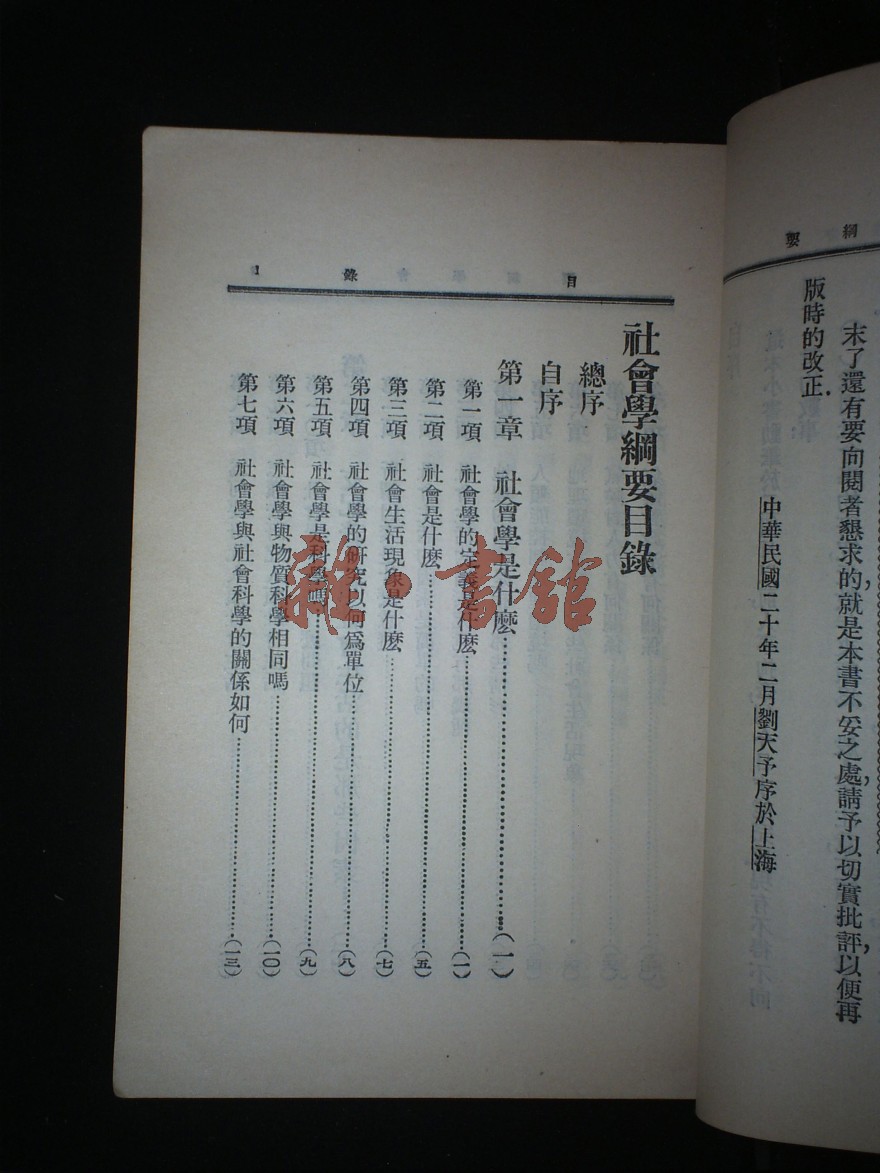 綱要
末了還有要向閱者懇求的就是本書不妥之處,請予以切實批評,以便再
版時的改正.
中華民國二十年二月劉天予序於上海
目錄 1
社會學綱要目錄
總序
自序
第一章 社會學是什麽………(一)
第一項 社會學的定義是什麽………(一)
第二項 社會是什麽………(五)
第三項 社會生活現象是什麽………(七)
第四項 社會學的研究以何爲單位………(八)
第五項 社會學是科學嗎………(九)
第六項 社會學與物質科學相同嗎………(一〇)
第七項 社會學與社會科學的關係如何………(一三)
雜·書館